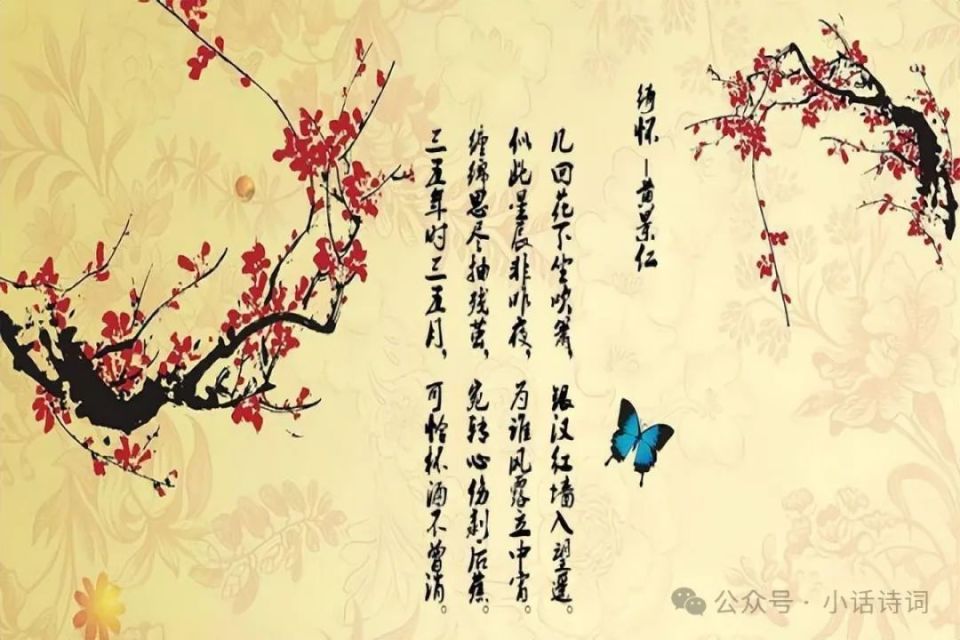 绮怀 —黄景仁
几回花下坐吹箫，银汉红墙入望遥。
似此星辰非昨夜，为谁风露立中宵。
缠绵思尽抽残茧，宛转心伤剥后蕉。
三五年时三五月，可怜杯酒不曾消。
公众号·小话诗词